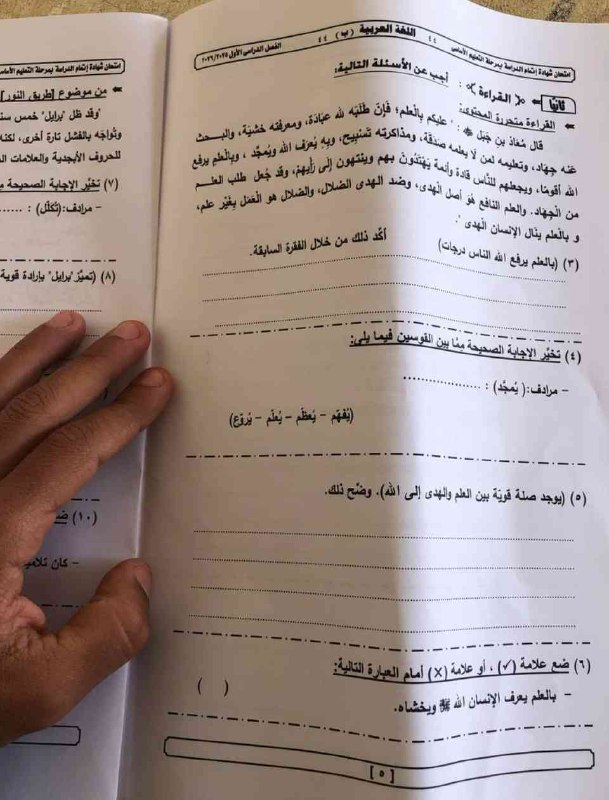 امتحان شهادة إتمام الدراسة بمرحلة التعليم الأساسى ٤٤ اللغة العربية (ب) ٤٤ الفصل الدراسى الأول ٢٠٢٦/٢٠٢٥
ثانيًا « القراءة » : أجب عن الأسئلة التالية:
القراءة متحررة المحتوى:
قال مُعَاذ بن جَبَل : " عليكم بالْعلم؛ فإنَّ طَلَبَه لله عبَادَة، ومعرفته خشيَة، والبــحث
عنه جهاد، وتعليمه لمن لا يعلمه صدقَة، ومذاكرته تَسْبيح، وبه يُعرَف الله ويُمجَّد ، وبالْعلم يرفع
الله أقومًا، ويجعلهم للنَّاس قادة وأئمة يَهْتَدُونَ بهم وينتهون إلَى رَأْيهمْ، وقد جُعل طلب العلــم
من الْجهاد. والعلم النافع هو أصل الْهدى، وضد الهدى الضلال، والضلال هو الْعَمَل بِغَيْر علم،
و بالْعلم ينال الإنسان الهدى ".
(٣) (بالعلم يرفع الله الناس درجات) أكد ذلك من خلال الفقرة السابقة.
(٤) تخيَّر الإجابة الصحيحة ممَّا بين القوسين فيما يلى:
– مرادف: ( يُمجَّد) : ..................
(يُفهّم – يُعظّم – يُعلّم – يُروّع)
(٥) (يوجد صلة قويَّة بين العلم والهدى إلى الله). وضَّح ذلك.
(٦) ضع علامة (✓) ، أو علامة (✗) أمام العبارة التالية:
– بالعلم يعرف الإنسان الله ﷻ ويخشاه. ( )
[ ٥ ]
امتحان شهادة إتمام الدراسة بمرحلة التعليم
من موضوع [طريق النور]
"وقد ظل "برايل" خمس
وتُواجَه بالفشل تارة أخرى،
للحروف الأبجدية والعلامات
(٧) تخيَّر الإجابة الصحيحة
– مرادف: (تُكلَّل) : ......
(٨) (تميَّز "برايل" بإرادة قوية
(١٠)
– كان